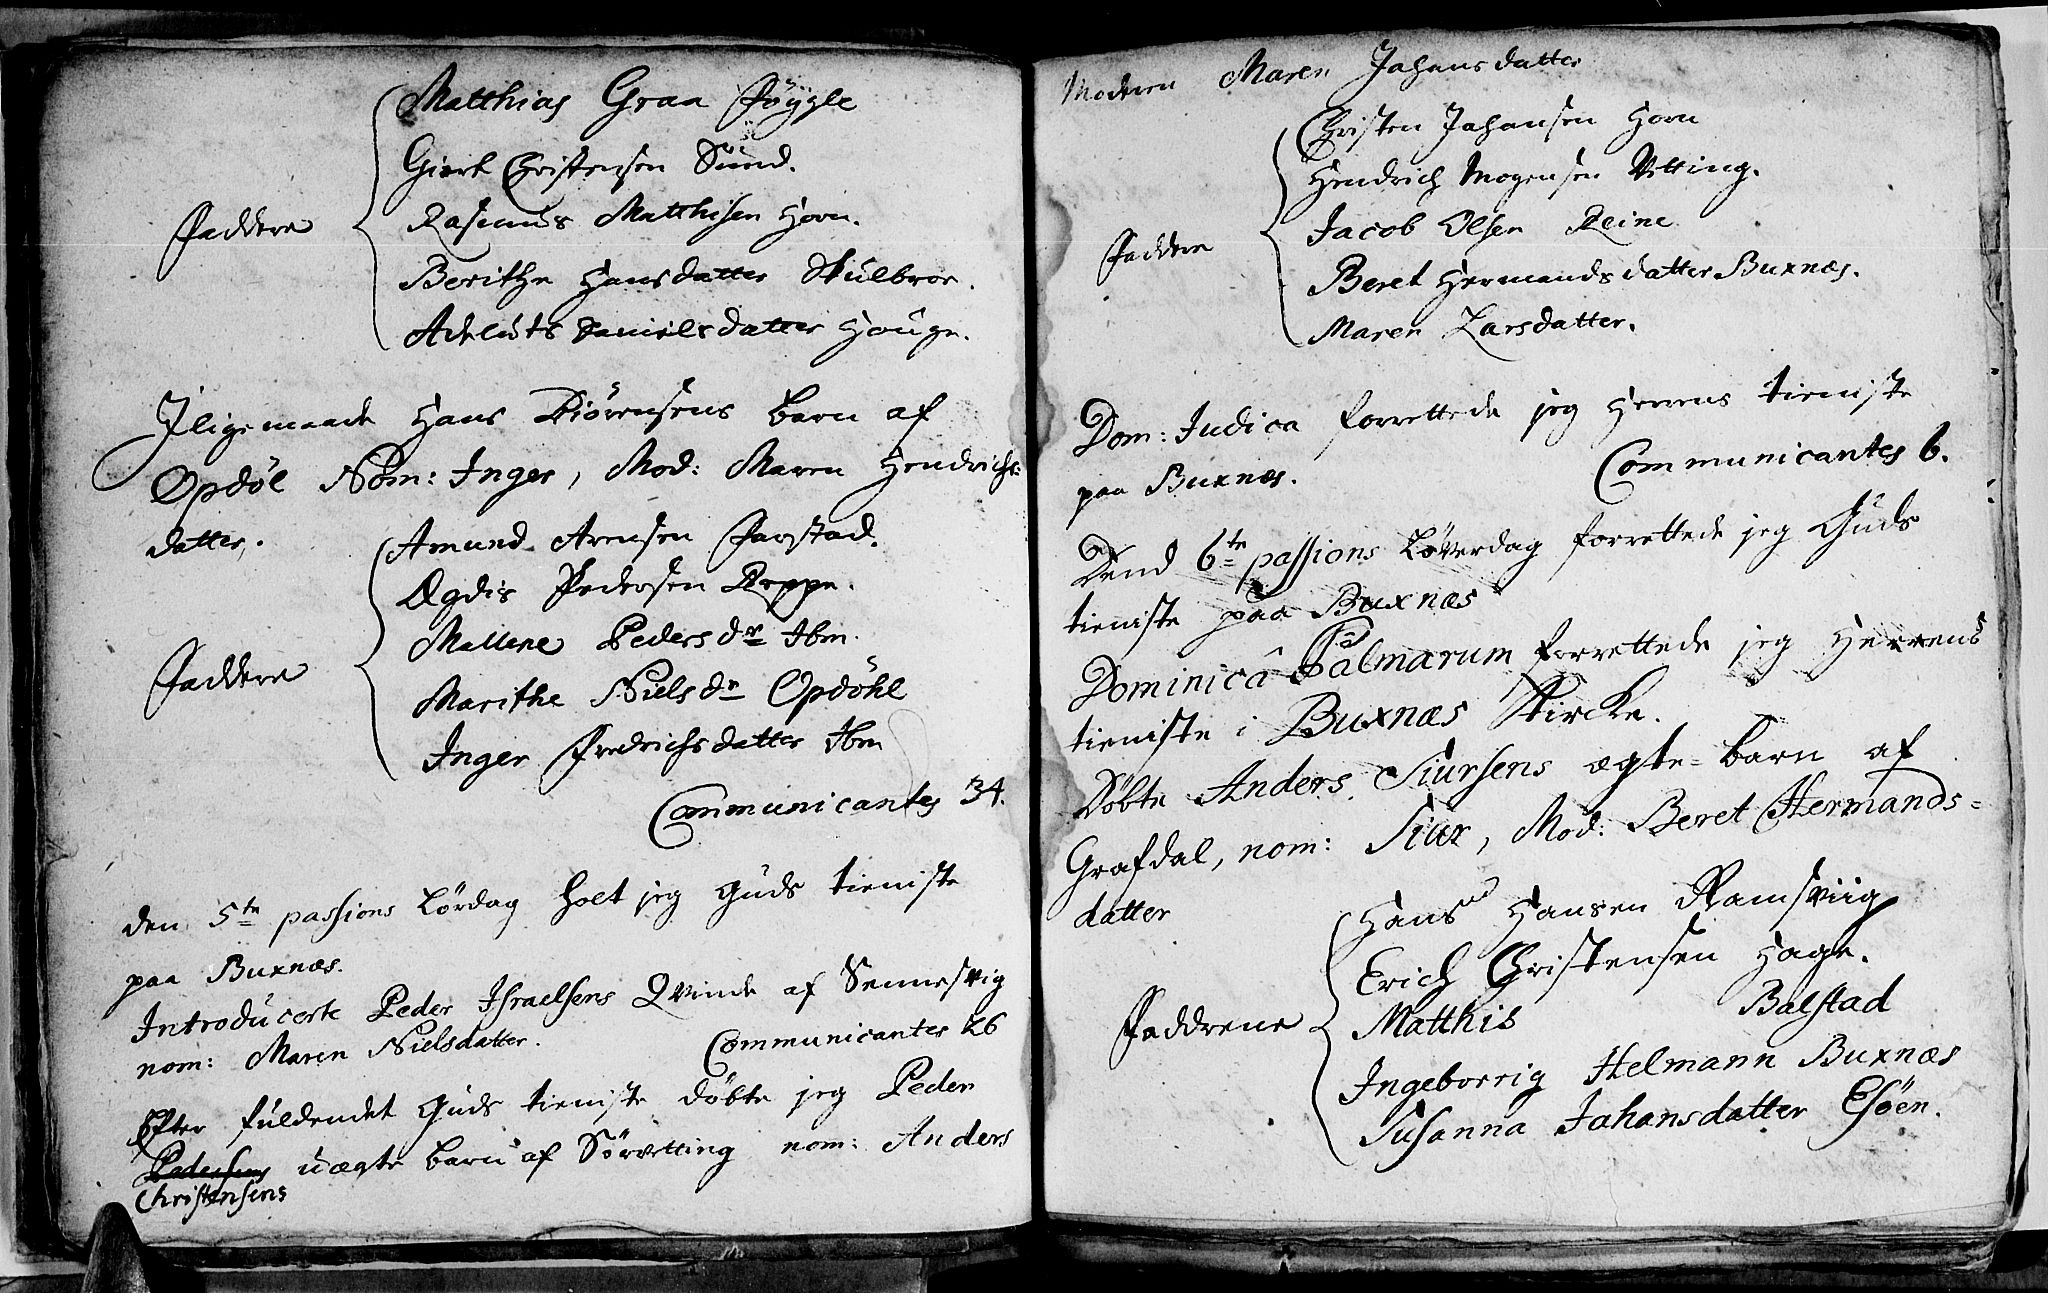 Matthias Graa Föÿgle
Giert Christensen Sund.
Rasmus Matthisen Horn.
Faddere
Berithe Hansdatter Skulbroe.
Adeluts Danielsdatter Houge.
Iligemaade Hans Biörensens barn af
Opdöl Nom: Inger, Mod: Maren Hendrichs-
datter.
Amund Arensen Farstad.
Ægdis Pedersen Reppe.
Mallene Peders dr Ibm.
Faddere
Marithe Niels dr Opdöhl
Inger Fredrichsdatter Ibm
Communicantes 34.
den 5te passions Lördag holt jeg Guds tieniste
paa Buxnæs.
Introducerte Peder Israelsens Qvinde af Sennesvig
nom: Maren Nielsdatter. Communicantes 26
Efter fuldendet Guds tieniste döbte jeg Peder
Pedersens uægte barn af Sörvetting nom: Anders
Christensens
Moderen Maren Jahansdatter
Christen Jahansen Horn
Hendrich Mogensen Vetting.
Jacob Olsen Reine
Faddere
Beret Hermandsdatter Buxnæs.
Maren Larsdatter.
Dom: Judica forrettede jeg Herrens tieniste
paa Buxnæs. Communicantes 6.
Dend 6te passions Löverdag forrettede jeg Guds
tieniste paa Buxnæs
Dominicâ Palmarum forrettede jeg Herrens
tieniste i Buxnæs Kircke.
Döbte Anders Siursens ægte-barn af
Grafdal, nom: Siur, Mod: Beret Hermands-
datter
Hans Hansen Ramsviig
Erich Christensen Hage.
Faddrene
Matthis Balstad
Ingeborrig Helmann Buxnæs
Susanna Jahansdatter Esöen.